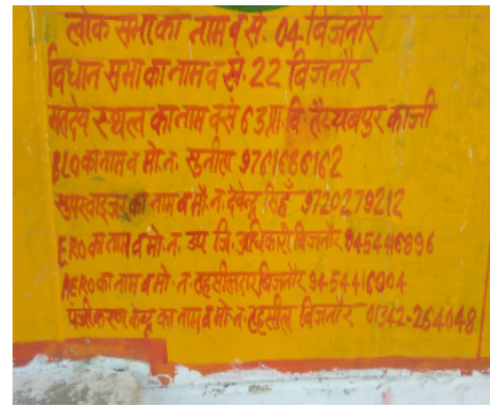 लोक सभा का नाम व सं. 04 बिजनौर
विधान सभा का नाम व सं. 22 बिजनौर
मतदेय स्थल का नाम व सं 63 प्रा. वि. तैय्यबपुर काजी
BLO का नाम व मो. न. सुनील 9761686162
सुपरवाइजर का नाम व मो. न. देवेन्द्र सिहँ 9720279212
ERO का नाम व मो. न. उप जि. अधिकारी बिजनौर 9454416896
AERO का नाम व मो. न. तहसीलदार बिजनौर 9454416904
पंजीकरण केन्द्र का नाम व मो. न. तहसील बिजनौर 01342-264048